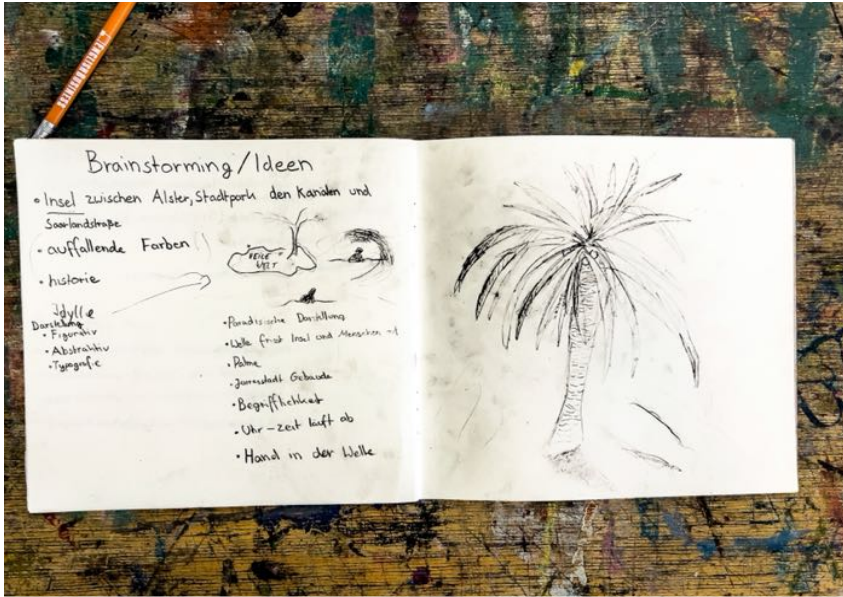 Brainstorming/Ideen
• Insel zwischen Alster, Stadtpark den Kanälen und
Saarlandstraße
• auffallende Farben
• historie
Idylle
Darstellung
• Figurativ
• Abstraktiv
• Typografie
HEILE
WELT
• Paradisische Darstellung
• Welle frist Insel und Menschen mit
• Palme
• Jarrestadt Gebäude
• Begrifflichkeit
• Uhr – zeit läuft ab
• Hand in der Welle